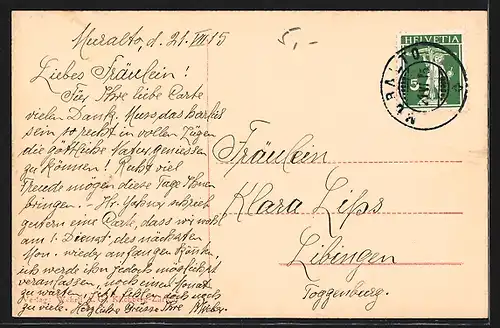 Muralto, d. 21. VIII 15
5,-
HELVETIA
5
MURALTO
Liebes Fräulein!
Für Ihre liebe Carte
vielen Dank. Muss das
sein so recht in vollen Zügen
die göttliche Natur geniessen
zu können! Recht viel
Freude mögen diese Tage Ihnen
bringen. - Hr. schrieb
gestern eine Carte, dass wir wohl
am 1. Dienst. des nächsten
Mon. wieder anfangen
ich werde ihn jedoch
veranlassen, noch einen Monat
zu warten,
zu viele. Herzliche Grüsse Ihre
Fräulein
Klara Lips
Libingen
Toggenburg.
Verlag: